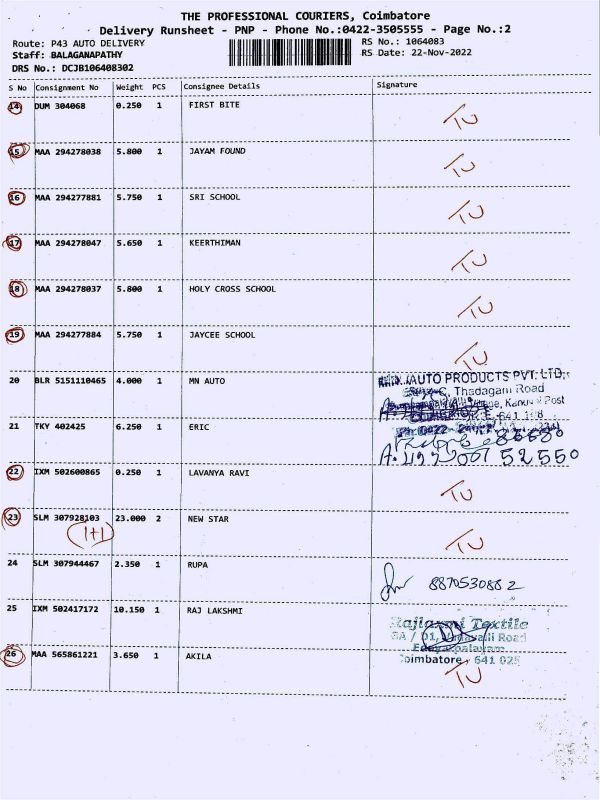 THE PROFESSIONAL COURIERS, Coimbatore
Delivery Runsheet - PNP - Phone No.:0422-3505555 - Page No.:2
Route: P43 AUTO DELIVERY RS No.: 1064083
Staff: BALAGANAPATHY RS Date: 22-Nov-2022
DRS No.: DCJB106408302
S No Consignment No Weight PCS Consignee Details Signature
14 DUM 304068 0.250 1 FIRST BITE TU
15 MAA 294278038 5.800 1 JAYAM FOUND TU
16 MAA 294277881 5.750 1 SRI SCHOOL TU
17 MAA 294278047 5.650 1 KEERTHIMAN TU
18 MAA 294278037 5.800 1 HOLY CROSS SCHOOL TU
19 MAA 294277884 5.750 1 JAYCEE SCHOOL TU
20 BLR 5151110465 4.000 1 MN AUTO
AUTO PRODUCTS PVT. LTD.
Thadagam Road
Post
21 TKY 402425 6.250 1 ERIC
52550
22 IXM 502600865 0.250 1 LAVANYA RAVI TU
23 SLM 307928103 23.000 2 NEW STAR TU
1+1
24 SLM 307944467 2.350 1 RUPA 8870530882
25 IXM 502417172 10.150 1 RAJ LAKSHMI
Textile
Road
641 025
26 MAA 565861221 3.650 1 AKILA TU